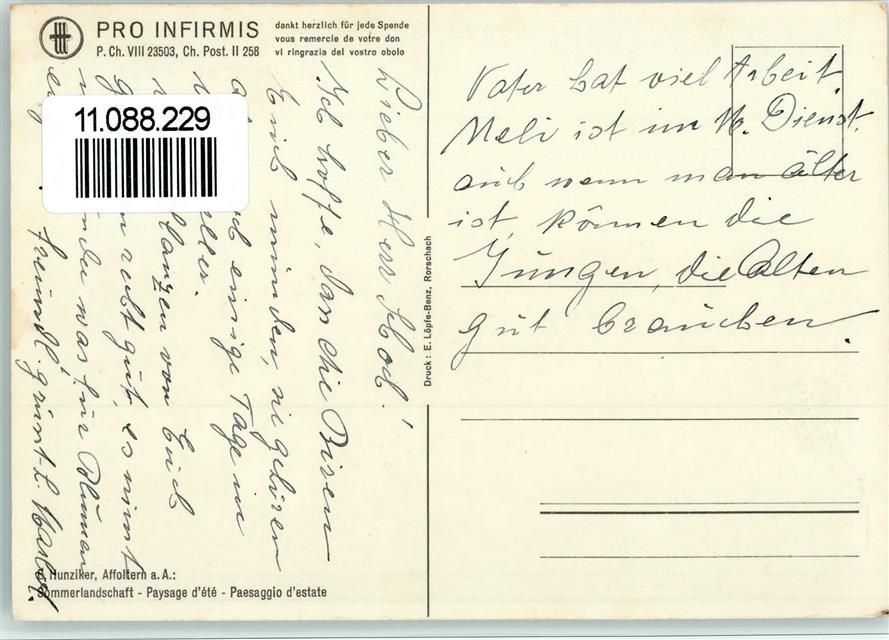 PRO INFIRMIS
P. Ch. VIII 23503, Ch. Post. II 258
dankt herzlich für jede Spende
vous remercie de votre don
vi ringrazia del vostro obolo
11.088.229
Lieber Herr
Ich hoffe, dass die Biren
Euch munden, sie gehören
aber noch einige Tage in
Keller.
von Euch
recht gut, es nimmt
was für Blumen
freundl. grüsst L.
Vater hat viel Arbeit,
Meli ist im M. Dienst,
auch wenn man älter
ist, können die
Jungen, die Alten
gut brauchen.
Druck: E. Löpfe-Benz, Rorschach
Hunziker, Affoltern a. A.:
Sommerlandschaft - Paysage d'été - Paesaggio d'estate